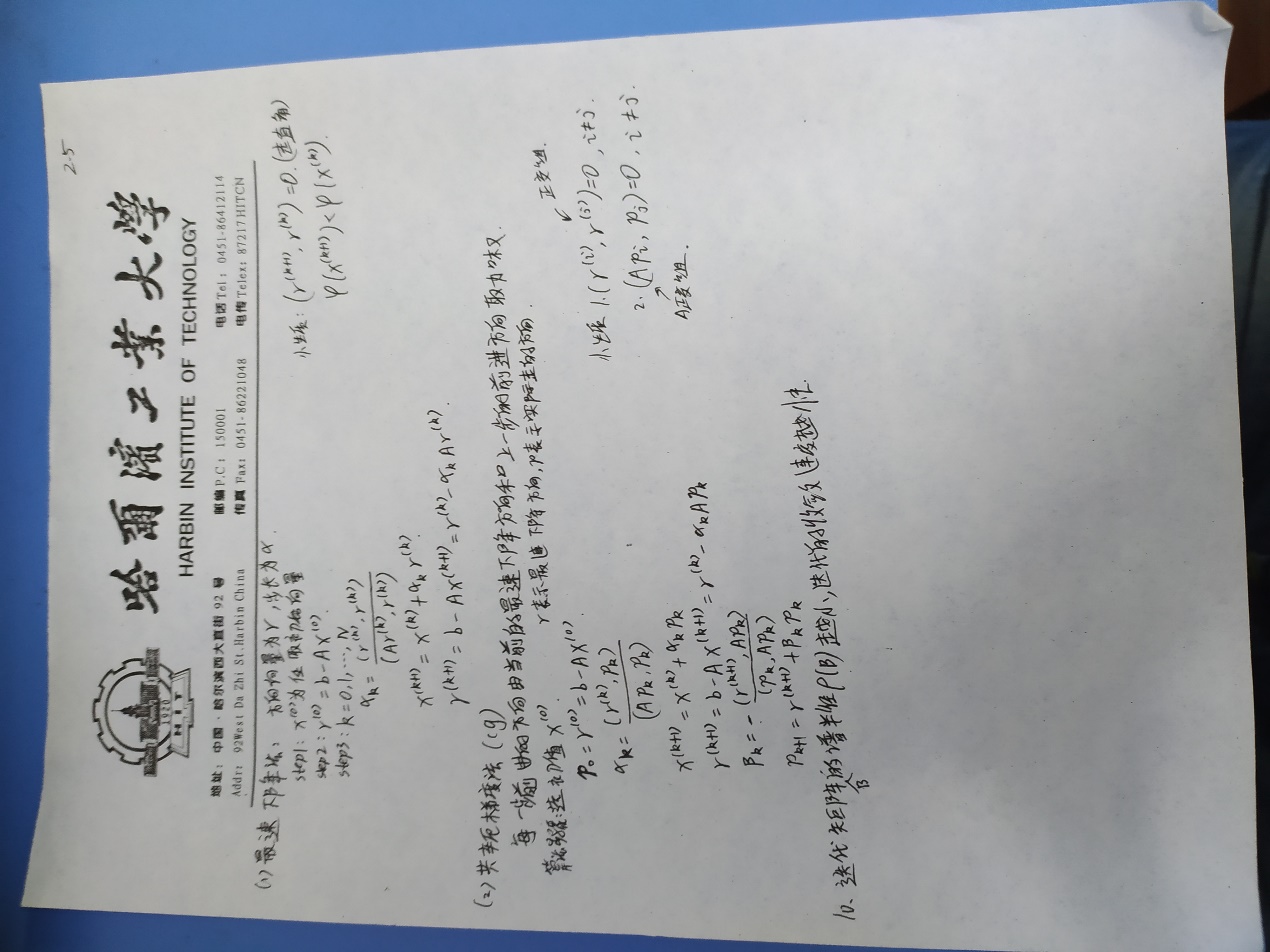 2-5
1920
HIT
哈爾濱工業大學
HARBIN INSTITUTE OF TECHNOLOGY
地址: 中国·哈尔滨西大直街 92 号 邮编 P.C: 150001 电话 Tel: 0451-86412114
Addr: 92West Da Zhi St.Harbin China 传真 Fax: 0451-86221048 电传 Telex: 87217 HITCN
(1) 最速下降法: 方向向量为r, 步长为α.
step1: x^(0)为任取初始向量
step2: r^(0) = b-Ax^(0).
step3: k=0,1,…,N
α_k = (r^(k), r^(k)) / (Ar^(k), r^(k))
x^(k+1) = x^(k) + α_k r^(k).
r^(k+1) = b-Ax^(k+1) = r^(k) - α_k Ar^(k).
小性质: (r^(k+1), r^(k)) = 0. (走直角)
φ(x^(k+1)) < φ(x^(k)).
(2) 共轭梯度法 (cg)
每一步前进的方向由当前的最速下降方向和上一步的前进方向取加权.
r表示最速下降方向, p表示实际走的方向.
算法步骤: 选初值 x^(0).
p_0 = r^(0) = b-Ax^(0).
α_k = (r^(k), p_k) / (Ap_k, p_k)
x^(k+1) = x^(k) + α_k p_k
r^(k+1) = b-Ax^(k+1) = r^(k) - α_k Ap_k
β_k = - (r^(k+1), Ap_k) / (p_k, Ap_k)
p_k+1 = r^(k+1) + β_k p_k
正交组.
小性质 1. (r^(i), r^(j)) = 0, i≠j.
2. (Ap_i, p_j) = 0, i≠j.
A正交组.
10、迭代矩阵B的谱半径ρ(B)越小, 迭代的收敛速度越快.